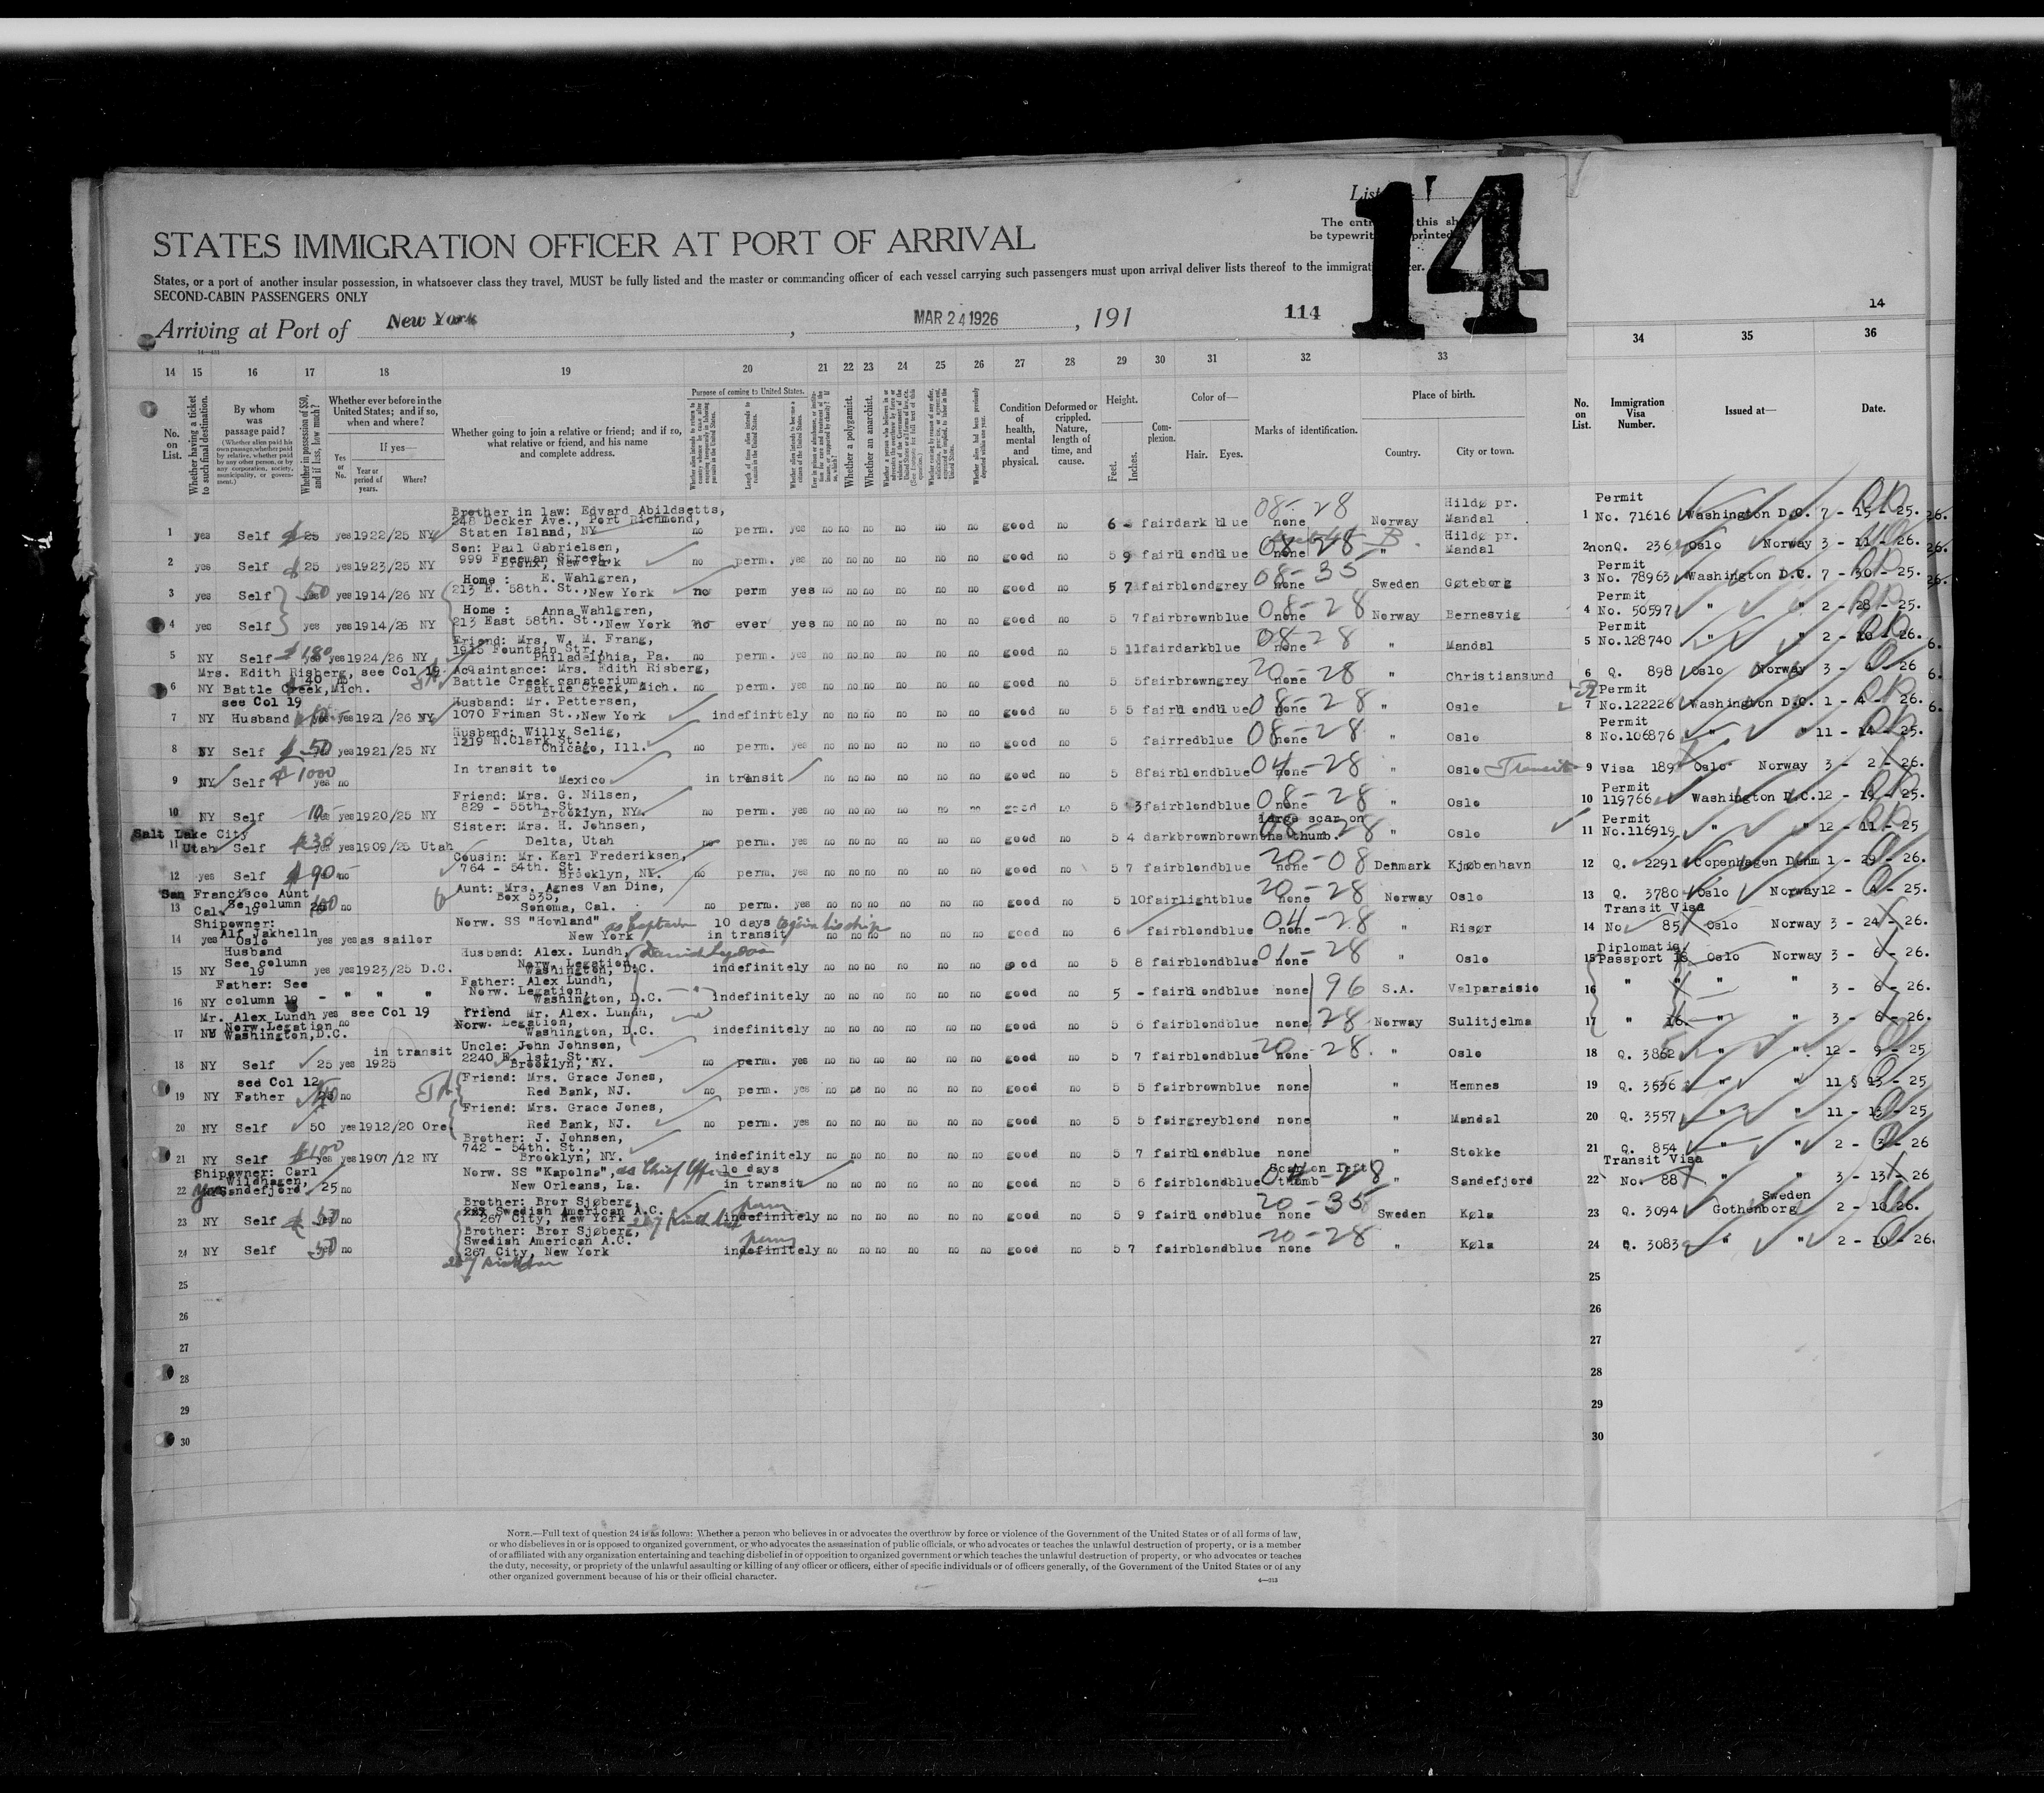 List
14
The entries this sh
be typewrit printed
STATES IMMIGRATION OFFICER AT PORT OF ARRIVAL
States, or a port of another insular possession, in whatsoever class they travel, MUST be fully listed and the master or commanding officer of each vessel carrying such passengers must upon arrival deliver lists thereof to the immigrat cer.
SECOND-CABIN PASSENGERS ONLY
Arriving at Port of New York, MAR 24 1926, 191 114
14
14 15 16 17 18 19 20 21 22 23 24 25 26 27 28 29 30 31 32 33 34 35 36
No. on List.
Whether having a ticket to such final destination.
By whom was passage paid?
(Whether alien paid his own passage, whether paid by relative, whether paid by any other person, or by any corporation, society, municipality, or government.)
Whether in possession of $50, and if less, how much?
Whether ever before in the United States; and if so, when and where?
Yes or No.
If yes—
Year or period of years.
Where?
Whether going to join a relative or friend; and if so, what relative or friend, and his name and complete address.
Purpose of coming to United States.
Length of time alien intends to remain in the United States.
Whether a polygamist.
Whether an anarchist.
Condition of health, mental and physical.
Deformed or crippled. Nature, length of time, and cause.
Height.
Feet.
Inches.
Complexion.
Color of—
Hair.
Eyes.
Marks of identification.
Place of birth.
Country.
City or town.
No. on List.
Immigration Visa Number.
Issued at—
Date.
Brother in law: Edvard Abildsetts,
248 Decker Ave., Port Richmond,
1 yes Self $ 25 yes 1922/25 NY Staten Island, NY no perm. yes no no no no no no good no 6 - fair dark blue 08-28 none Norway Hildø pr. Mandal 1 Permit No. 71616 Washington D.C. 7 - 15 - 25.
Son: Paul Gabrielsen,
999 Freeman Street,
2 yes Self $ 25 yes 1923/25 NY Bronx, New York no perm. yes no no no no no no good no 5 9 fair blond blue 08-28 none " Hildø pr. Mandal 2 non Q. 236 Oslo Norway 3 - 11 - 26.
Home : E. Wahlgren,
3 yes Self yes 1914/26 NY 213 E. 58th. St., New York no perm yes no no no no no no good no 5 7 fair blond grey 08-35 none Sweden Gøteborg 3 Permit No. 78963 Washington D.C. 7 - 30 - 25.
Home : Anna Wahlgren,
4 yes Self yes yes 1914/26 NY 213 East 58th. St., New York no ever yes no no no no no no good no 5 7 fair brown blue 08-28 none Norway Bernesvig 4 Permit No. 50597 " " 2 - 28 - 25.
Friend: Mrs. W. M. Frang,
1915 Fountain Str.,
5 NY Self $ 180 yes yes 1924/26 NY Philadelphia, Pa. no perm. yes no no no no no no good no 5 11 fair dark blue 08-28 none " Mandal 5 Permit No. 128740 " " 2 - 10 - 26.
Mrs. Edith Risberg, see Col 19 Acqaintance: Mrs. Edith Risberg,
Battle Creek sanatorium,
6 NY Battle Creek, Mich. 40 no Battle Creek, Mich. no perm. yes no no no no no no good no 5 5 fair brown grey 20-28 none " Christiansund 6 Q. 898 Oslo Norway 3 - 4 - 26
see Col 19 Husband: Mr. Pettersen,
7 NY Husband yes 1921/26 NY 1070 Friman St., New York indefinitely no no no no no no good no 5 5 fair blond blue 08-28 none " Oslo 7 Permit No. 122226 Washington D.C. 1 - 4 - 26.
Husband: Willy Selig,
1219 N. Clark St.,
8 NY Self $ 50 yes 1921/25 NY Chicago, Ill. no perm. yes no no no no no no good no 5 fair red blue 08-28 none " Oslo 8 Permit No. 106876 " " 11 - 14 - 25.
In transit to
9 NY Self $ 1000 yes no Mexico in transit no no no no no no good no 5 8 fair blond blue 04-28 none " Oslo Transit 9 Visa 189 Oslo Norway 3 - 2 - 26.
Friend: Mrs. G. Nilsen,
829 - 55th. St.,
10 NY Self yes 1920/25 NY Brooklyn, NY. no perm. yes no no no no no no good no 5 3 fair blond blue 08-28 none " Oslo 10 Permit 119766 Washington D.C. 12 - 19 - 25.
Salt Lake City Sister: Mrs. H. Johnsen,
11 Utah Self $ 30 yes yes 1909/25 Utah Delta, Utah no perm. yes no no no no no no good no 5 4 dark brown brown large scar on the thumb. 08-28 " Oslo 11 Permit No. 116919 " " 12 - 11 - 25
Cousin: Mr. Karl Frederiksen,
764 - 54th. St.,
12 yes Self $ 90 no Brooklyn, NY. no perm. yes no no no no no no good no 5 7 fair blond blue 20-08 none Denmark Kjøbenhavn 12 Q. 2291 Copenhagen Denm 1 - 29 - 26.
San Francisco Aunt Aunt: Mrs. Agnes Van Dine,
Se column Box 535,
13 Cal. 19 no Sonoma, Cal. no perm. yes no no no no no no good no 5 10 fair light blue 20-28 none Norway Oslo 13 Q. 3780 Oslo Norway 12 - 4 - 25.
Shipowner: Norw. SS "Howland" as Captain 10 days to join his ship
14 yes Alf Jakhelln Oslo yes yes as sailor New York in transit no no no no no no good no 6 fair blond blue 04-28 none " Risør 14 Transit Visa No 85 Oslo Norway 3 - 24 - 26.
Husband Husband: Alex. Lundh,
See column Norw. Legation,
15 NY 19 yes yes 1923/25 D.C. Washington, D.C. indefinitely no no no no no no good no 5 8 fair blond blue 01-28 none " Oslo 15 Diplomatic Passport 16 Oslo Norway 3 - 6 - 26.
Father: See Father: Alex Lundh,
Norw. Legation,
16 NY column 19 - " " " Washington, D.C. indefinitely no no no no no no good no 5 - fair blond blue none 96 S.A. Valparaisio 16 " " " " 3 - 6 - 26.
Mr. Alex Lundh yes see Col 19 Friend Mr. Alex. Lundh,
Norw. Legation no Norw. Legation,
17 NY Washington, D.C. Washington, D.C. indefinitely no no no no no no good no 5 6 fair blond blue none 28 Norway Sulitjelma 17 " 16. " " 3 - 6 - 26.
Uncle: John Johnsen,
in transit 2240 E. 1st. St.,
18 NY Self 25 yes 1925 Brooklyn, NY. no perm. yes no no no no no no good no 5 7 fair blond blue 20-28 none " Oslo 18 Q. 3862 " " 12 - 9 - 25
see Col 12 Friend: Mrs. Grace Jones,
19 NY Father no Red Bank, NJ. no perm. yes no no no no no no good no 5 5 fair brown blue none " Hemnes 19 Q. 3556 " " 11 § 13 - 25
Friend: Mrs. Grace Jones,
20 NY Self 50 yes 1912/20 Ore Red Bank, NJ. no perm. yes no no no no no no good no 5 5 fair grey blond none " Mandal 20 Q. 3557 " " 11 - 13 - 25
Brother: J. Johnsen,
742 - 54th. St.,
21 NY Self $ 100 yes yes 1907/12 NY Brooklyn, NY. indefinitely no no no no no no good no 5 7 fair blond blue none " Stokke 21 Q. 854 " " 2 - 3 - 26
Shipowner: Carl Wildhagen, Norw. SS "Kapolna", as Chief Off 10 days
22 yes Sandefjord 25 no New Orleans, La. in transit no no no no no no good no 5 6 fair blond blue Scar on left thumb 04-28 " Sandefjord 22 Transit Visa No. 88 " " 3 - 13 - 26
Brother: Bror Sjøberg,
Swedish American A.C. perm
23 NY Self $ no 267 City, New York indefinitely no no no no no no good no 5 9 fair blond blue 20-35 none Sweden Køla 23 Q. 3094 Gothenborg Sweden 2 - 10 26.
Brother: Bror Sjøberg,
Swedish American A.C. perm
24 NY Self no 267 City, New York indefinitely no no no no no no good no 5 7 fair blond blue 20-28 none " Køla 24 Q. 3083 " " 2 - 10 - 26.
25 25
26 26
27 27
28 28
29 29
30 30
NOTE.—Full text of question 24 is as follows: Whether a person who believes in or advocates the overthrow by force or violence of the Government of the United States or of all forms of law,
or who disbelieves in or is opposed to organized government, or who advocates the assassination of public officials, or who advocates or teaches the unlawful destruction of property, or is a member
of or affiliated with any organization entertaining and teaching disbelief in or opposition to organized government or which teaches the unlawful destruction of property, or who advocates or teaches
the duty, necessity, or propriety of the unlawful assaulting or killing of any officer or officers, either of specific individuals or of officers generally, of the Government of the United States or of any
other organized government because of his or their official character.